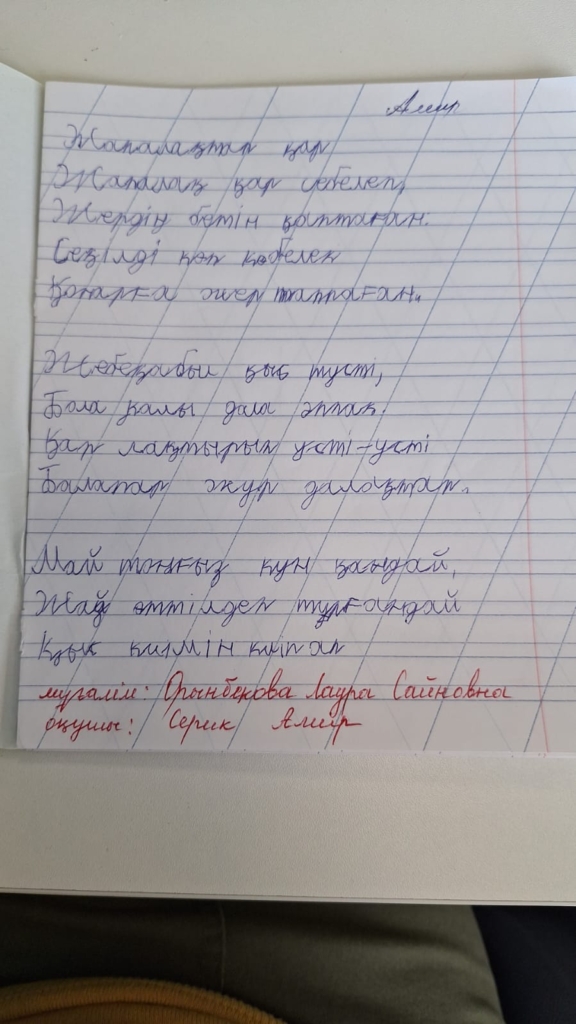 Амир
Жапалақтап қар
Жапалақ қар себелеп,
Жердің бетін қаптаған.
Сезілді көп көбелек
Қонарға жер таппаған.
Жебеқабыл қыс түсті,
Бола қалы дала аппақ.
Қар лақтырып үсті-үсті
Балапар жүр далақтап.
Май тоңғыз күн қандай,
Жаңа әттілден тұрғандай
Ққық килмін киіпап
мұғалім: Орынбекова Лаура Сайновна
оқушы: Серик Амир